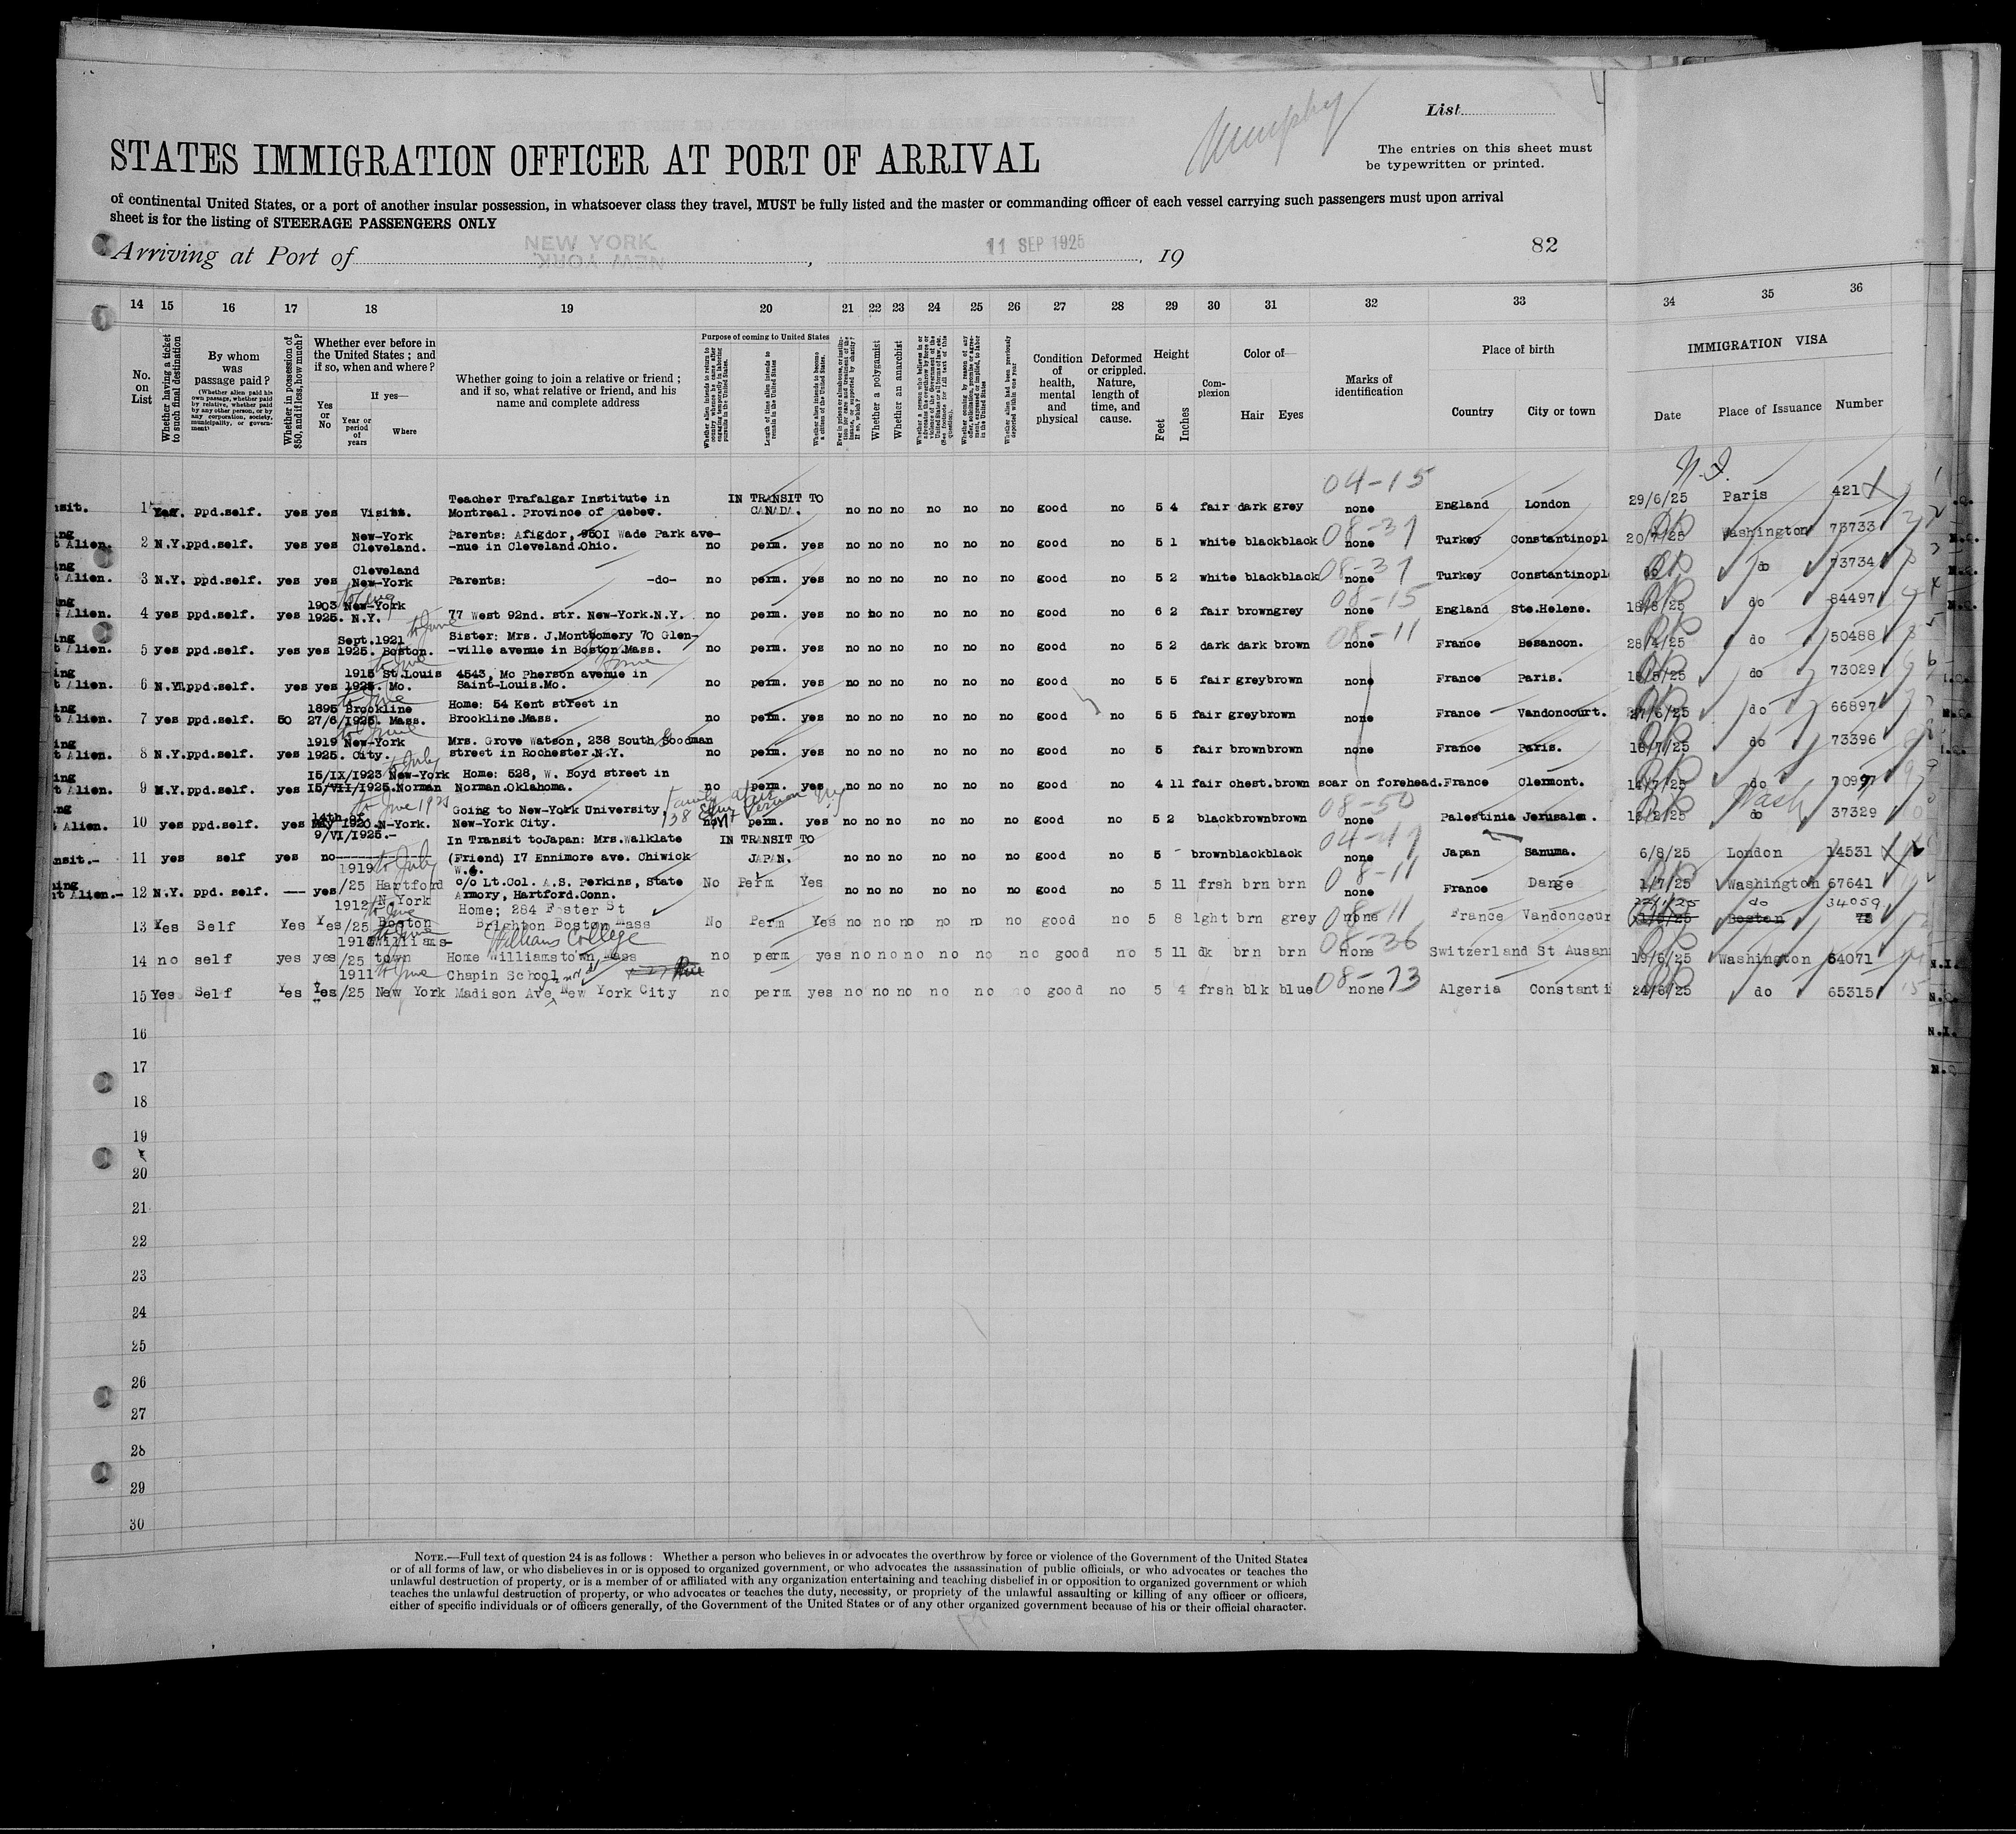 List
Murphy
The entries on this sheet must
be typewritten or printed.
STATES IMMIGRATION OFFICER AT PORT OF ARRIVAL
of continental United States, or a port of another insular possession, in whatsoever class they travel, MUST be fully listed and the master or commanding officer of each vessel carrying such passengers must upon arrival
sheet is for the listing of STEERAGE PASSENGERS ONLY
Arriving at Port of NEW YORK, 11 SEP 1925, 19 82
14 15 16 17 18 19 20 21 22 23 24 25 26 27 28 29 30 31 32 33 34 35 36
No. on List
Whether having a ticket to such final destination
By whom was passage paid?
(Whether alien paid his own passage, whether paid by relative, whether paid by any other person, or by any corporation, society, municipality, or government)
Whether in possession of $50, and if less, how much?
Whether ever before in the United States; and if so, when and where?
Yes or No
If yes—
Year or period of years
Where
Whether going to join a relative or friend; and if so, what relative or friend, and his name and complete address
Purpose of coming to United States
Whether alien intends to return to country whence he came after engaging temporarily in laboring pursuits in the United States
Length of time alien intends to remain in the United States
Whether alien intends to become a citizen of the United States.
Whether a polygamist
Whether an anarchist
Condition of health, mental and physical
Deformed or crippled. Nature, length of time, and cause.
Height
Feet Inches
Complexion
Color of—
Hair Eyes
Marks of identification
Place of birth
Country City or town
IMMIGRATION VISA
Date Place of Issuance Number
04-15
nsit. 1 ppd.self. yes yes Visits. Teacher Trafalgar Institute in
Montreal. Province of Quebec. IN TRANSIT TO CANADA. no no no no no no good no 5 4 fair dark grey none England London 29/6/25 Paris 421
t Alien. 2 N.Y. ppd.self. yes yes New-York Cleveland. Parents: Afigdor, 9501 Wade Park ave-
-nue in Cleveland.Ohio. no perm. yes no no no no no no good no 5 1 white black black 08-37 none Turkey Constantinopl 20/7/25 Washington 73733
t Alien. 3 N.Y. ppd.self. yes yes Cleveland New-York Parents: -do- no perm. yes no no no no no no good no 5 2 white black black 08-37 none Turkey Constantinopl do do 73734
t Alien. 4 yes ppd.self. yes 1903 New-York 1925. N.Y. 77 West 92nd. str. New-York.N.Y. no perm. yes no no no no no no good no 6 2 fair brown grey 08-15 none England Ste.Helene. 18/8/25 do 84497
t Alien. 5 yes ppd.self. yes yes Sept.1921 to June 1925. Boston. Sister: Mrs. J.Montbomery 70 Glen-
-ville avenue in Boston.Mass. no perm. yes no no no no no no good no 5 2 dark dark brown 08-11 none France Besancon. 28/4/25 do 50488
t Alien. 6 ppd.self. yes yes 1915 St.Louis to June 1925. Mo. 4543, Mc Pherson avenue in
Saint-Louis.Mo. Home no perm. yes no no no no no no good no 5 5 fair grey brown none France Paris. do 73029
t Alien. 7 yes ppd.self. 50 1895 Brookline to June 27/6/1925. Mass. Home: 54 Kent street in
Brookline.Mass. no perm. yes no no no no no no good no 5 5 fair grey brown none France Vandoncourt. 27/6/25 do 66897
t Alien. 8 N.Y.ppd.self. yes 1919 New-York to June 1925. City. Mrs. Grove Watson, 238 South Goodman
street in Rochester.N.Y. no perm. yes no no no no no no good no 5 fair brown brown none France Paris. do 73396
t Alien. 9 N.Y.ppd.self. yes 15/IX/1923 New-York to July 15/VII/1925.Norman Home: 528, W. Boyd street in
Norman.Oklahoma. no perm. yes no no no no no no good no 4 11 fair chest.brown scar on forehead. France Clermont. 14/7/25 do
Alien. 10 yes ppd.self. yes 14th of May 1920 N-York. to June 1925 9/VI/1925.- Going to New-York University,
New-York City. no perm. yes no no no no no no good no 5 2 black brown brown 08-50 none Palestinia Jerusalem. do Wash 37329
nsit.- 11 yes self yes no In Transit toJapan: Mrs.Walklate
(Friend) 17 Ennimore ave. Chiwick
IN TRANSIT TO JAPAN. no no no no no no good no 5 - brown black black 04-47 none Japan Sanuma. 6/8/25 London 14531
rt Alien.- 12 N.Y. ppd. self. -- yes 1919 to July /25 Hartford c/o Lt.Col. A.S. Perkins, State
Armory, Hartford.Conn. No Perm Yes no no no no no no good no 5 11 frsh brn brn 08-11 none France Dange 1/7/25 Washington 67641
13 Yes Self Yes Yes 1912 N.York to June /25 Boston Home; 284 Foster St
Brighton Boston Mass No Perm Yes no no no no no no good no 5 8 lght brn grey 08-11 none France Vandoncour do Boston 34059
14 no self yes yes 1910 Williams- to June /25 town Williams College
Home Williamstown Mass no perm yes no no no no no no good no 5 11 dk brn brn 08-36 none Switzerland St Ausan 19/6/25 Washington 64071
15 Yes Self Yes Yes 1911 to June /25 New York Chapin School
Madison Ave New York City no perm yes no no no no no no good no 5 4 frsh blk blue 08-73 none Algeria Constanti 24/6/25 do 65315
16
17
18
19
20
21
22
23
24
25
26
27
28
29
30
NOTE.—Full text of question 24 is as follows: Whether a person who believes in or advocates the overthrow by force or violence of the Government of the United States
or of all forms of law, or who disbelieves in or is opposed to organized government, or who advocates the assassination of public officials, or who advocates or teaches the
unlawful destruction of property, or is a member of or affiliated with any organization entertaining and teaching disbelief in or opposition to organized government or which
teaches the unlawful destruction of property, or who advocates or teaches the duty, necessity, or propriety of the unlawful assaulting or killing of any officer or officers,
either of specific individuals or of officers generally, of the Government of the United States or of any other organized government because of his or their official character.